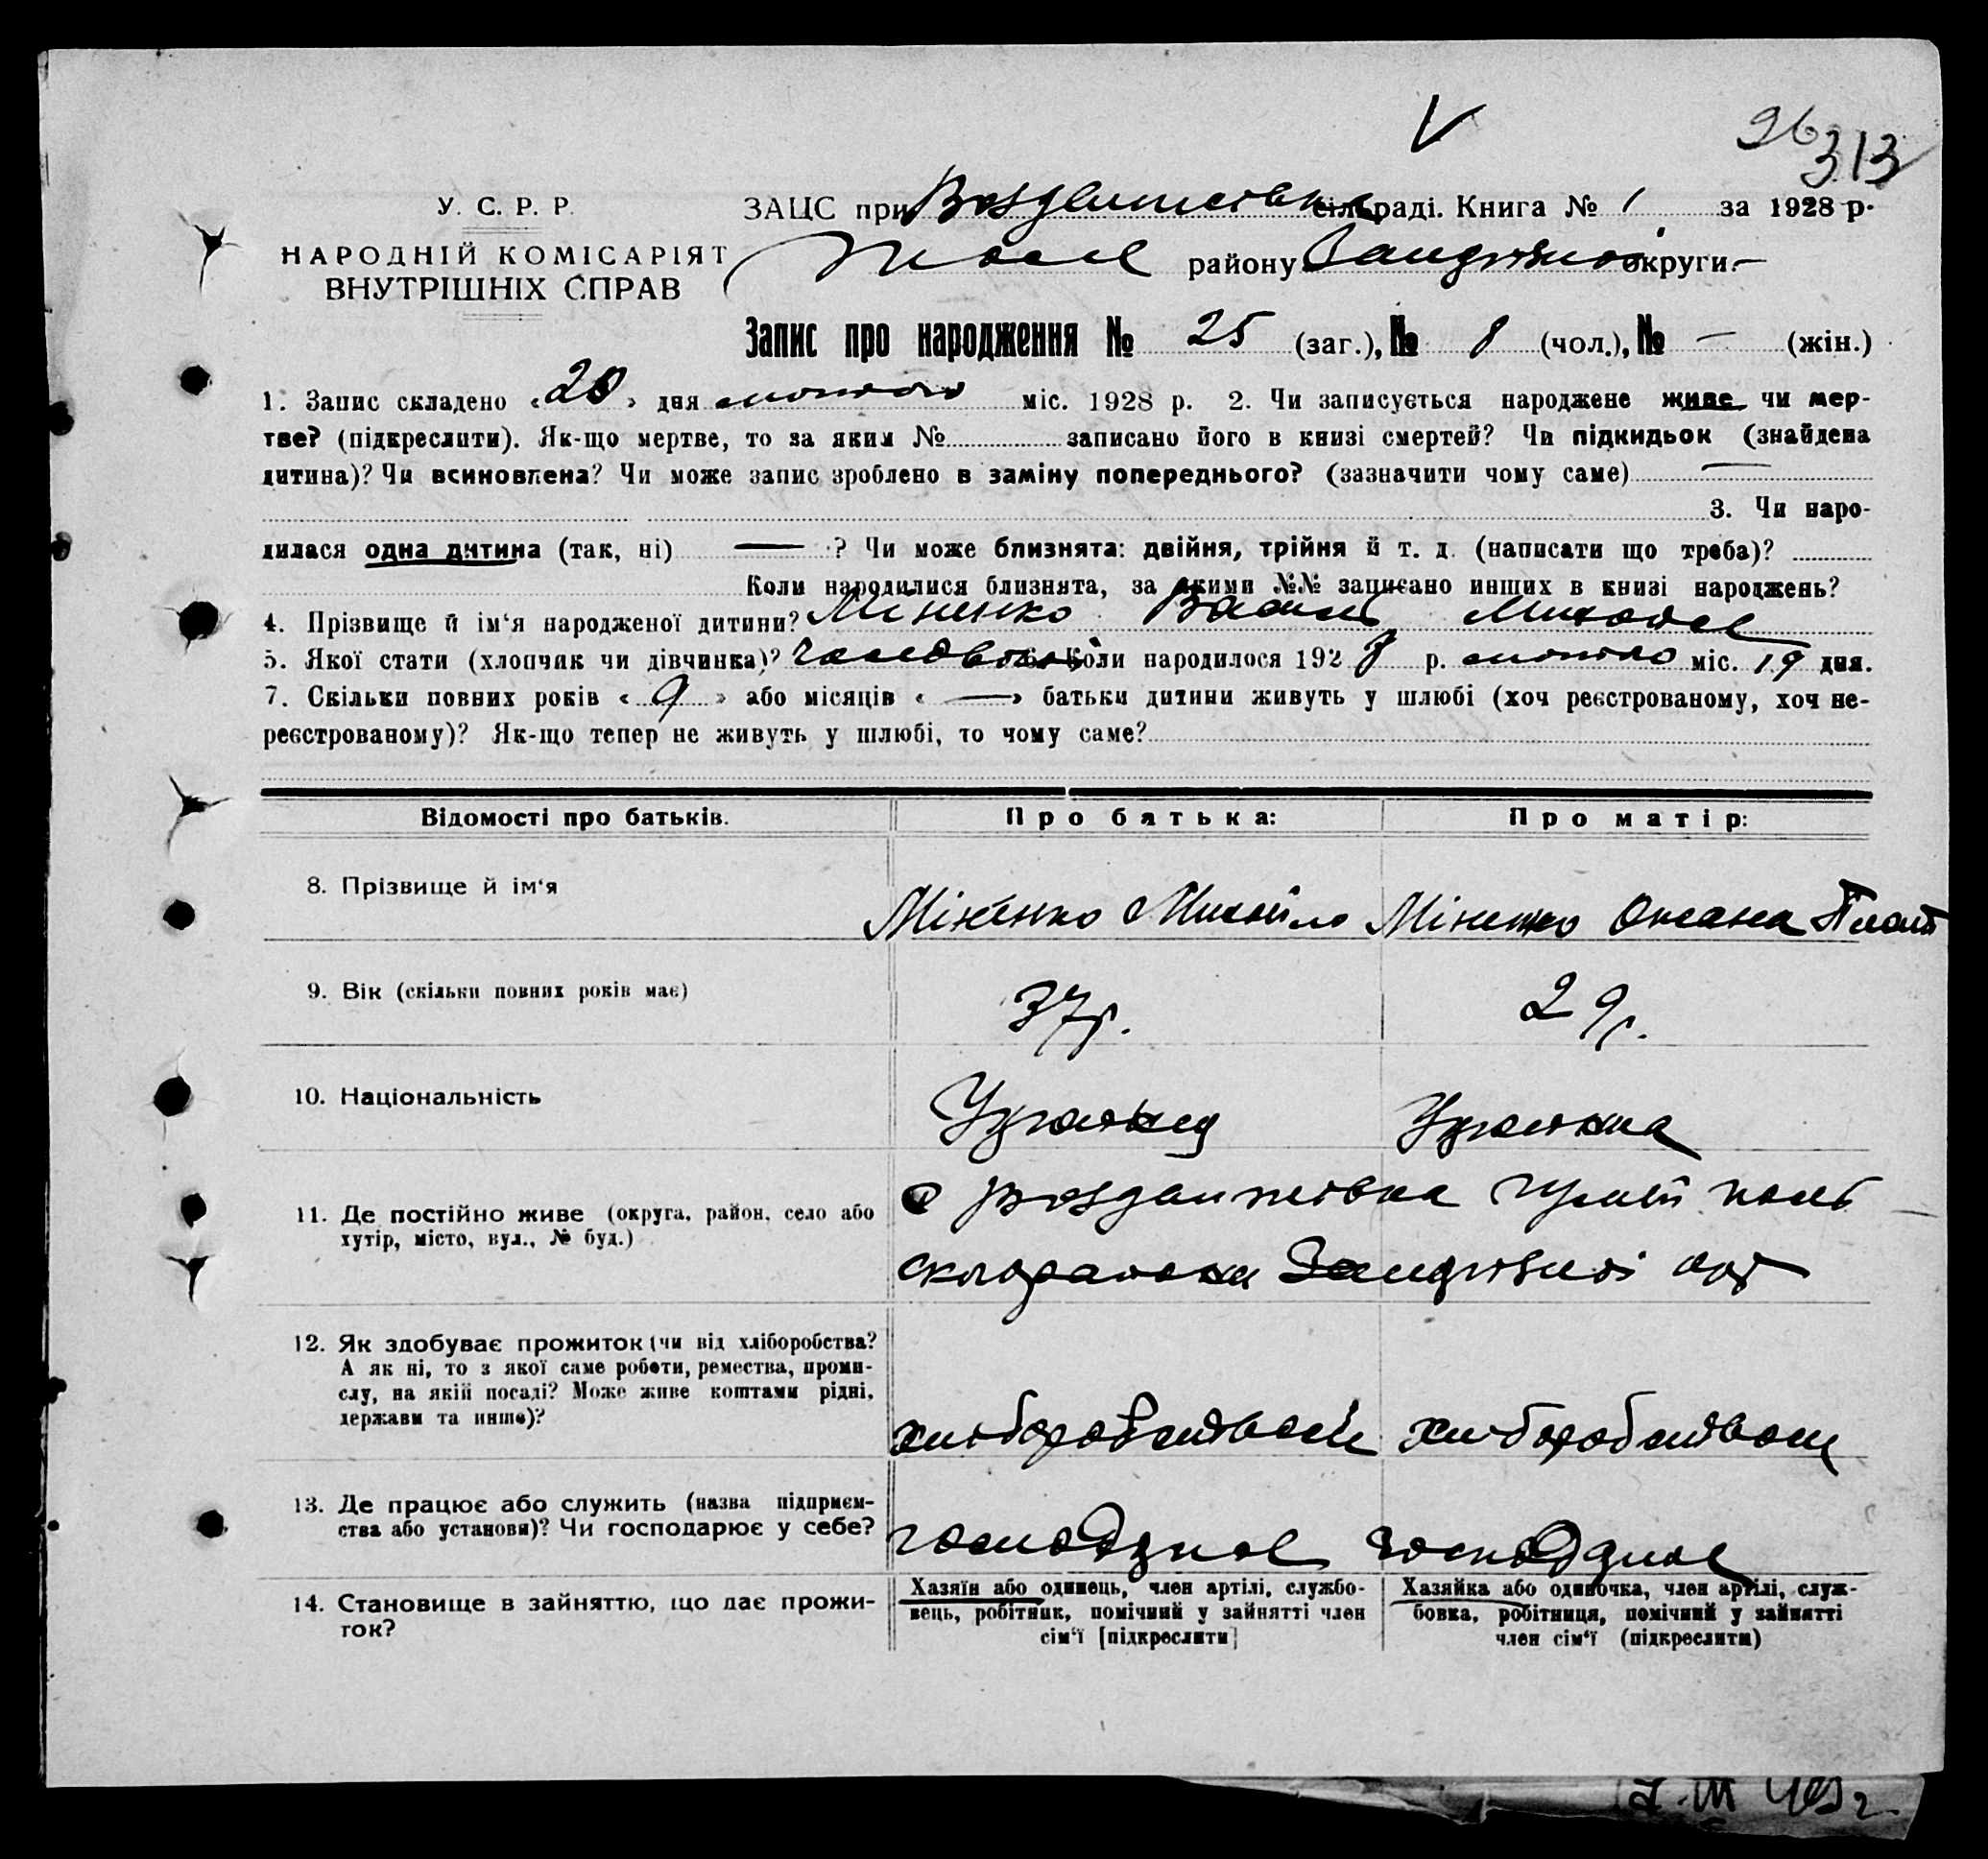 V
96
313
У. С. Р. Р.
НАРОДНІЙ КОМІСАРІЯТ
ВНУТРІШНІХ СПРАВ
ЗАЦС при Воздвижівка сільраді. Книга № 1 за 1928 р.
району округи.
Запис про народження № 25 (заг.), № 8 (чол.), № — (жін.)
1. Запис складено «20» дня лютого міс. 1928 р. 2. Чи записується народжене живе чи мер-
тве? (підкреслити). Як-що мертве, то за яким № записано його в книзі смертей? Чи підкидьок (знайдена
дитина)? Чи всиновлена? Чи може запис зроблено в заміну попереднього? (зазначити чому саме) —
3. Чи наро-
дилася одна дитина (так, ні) — ? Чи може близнята: двійня, трійня й т. д. (написати що треба)?
Коли народилися близнята, за якими №№ записано инших в книзі народжень?
4. Прізвище й ім‘я народженої дитини? Міненко Василь
5. Якої стати (хлопчик чи дівчинка)? 6. Коли народилося 1928 р. лютого міс. 19 дня.
7. Скільки повних років «9» або місяців «—» батьки дитини живуть у шлюбі (хоч реєстрованому, хоч не-
реєстрованому)? Як-що тепер не живуть у шлюбі, то чому саме?
Відомості про батьків. Про батька: Про матір:
8. Прізвище й ім‘я Міненко Михайло Міненко Оксана
9. Вік (скільки повних років має) 37р. 29р.
10. Національність Украінец Украінка
11. Де постійно живе (округа, район, село або
хутір, місто, вул., № буд.)
с Воздвижівка
12. Як здобуває прожиток (чи від хліборобства?
А як ні, то з якої саме роботи, ремества, проми-
слу, на якій посаді? Може живе коштами рідні,
держави та инше)?
хліборобством хліборобством
13. Де працює або служить (назва підприєм-
ства або установи)? Чи господарює у себе?
14. Становище в зайняттю, що дає прожи-
ток?
Хазяїн або одинець, член артілі, службо-
вець, робітник, помічний у зайнятті член
сім‘ї [підкреслити]
Хазяйка або одиночка, член артілі, служ-
бовка, робітниця, помічний у зайнятті
член сім‘ї (підкреслити)